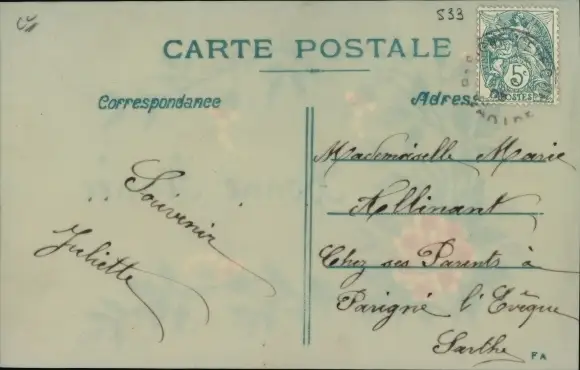 533
CARTE POSTALE
Correspondance
Adress
5c
POSTES
Souvenir
Juliette
Mademoiselle Marie
Allinant
Chez ses Parents à
Parigné l'Evêque
Sarthe
FA